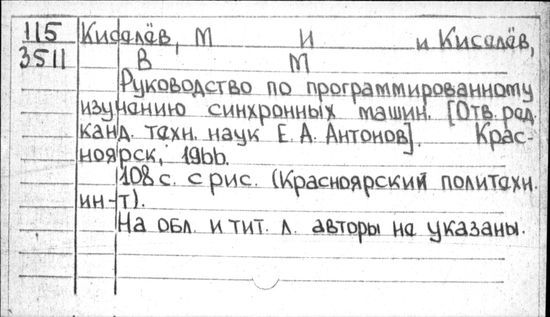 115 Киселёв, М И и Киселёв,
3511 В М
Руководство по программированному
изучению синхронных машин. [Отв. ред.
канд. техн. наук Е. А. Антонов]. Крас-
ноярск, 1966.
108 с. с рис. (Красноярский политехн.
ин-т).
На обл. и тит. л. авторы не указаны.